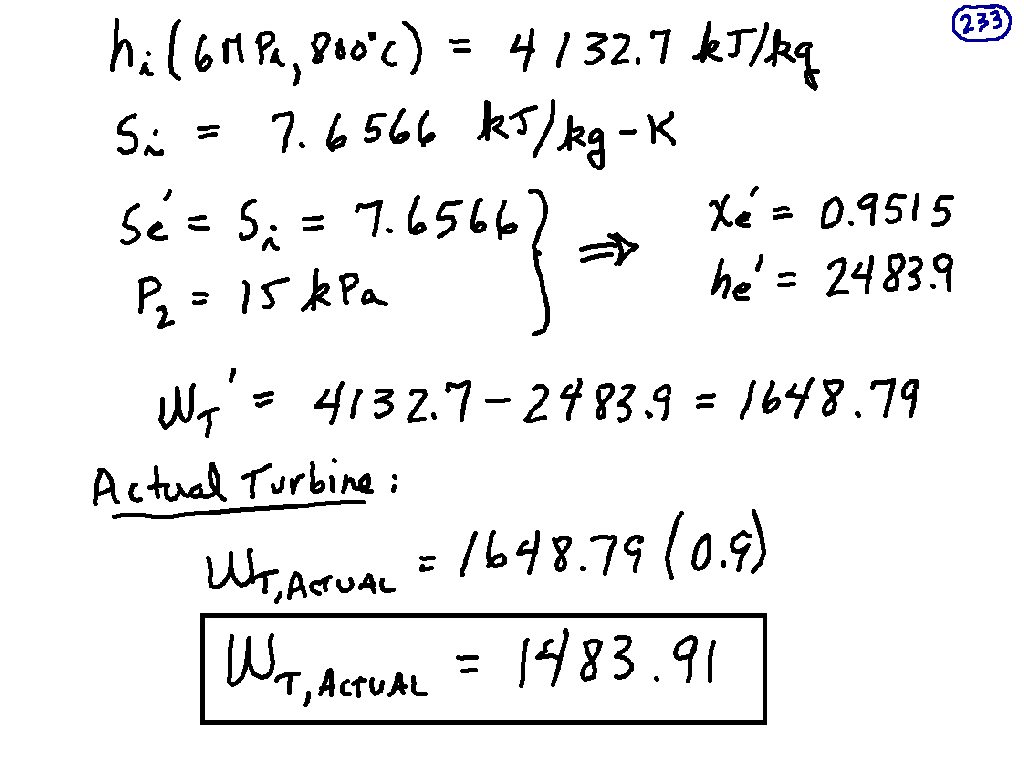 233
hᵢ(6MPa, 800°C) = 4132.7 kJ/kg
Sᵢ = 7.6566 kJ/kg-K
Se' = Sᵢ = 7.6566 } ⇒ Xe' = 0.9515
P₂ = 15 kPa he' = 2483.9
W_T' = 4132.7 - 2483.9 = 1648.79
Actual Turbine:
W_T,ACTUAL = 1648.79 (0.9)
W_T,ACTUAL = 1483.91